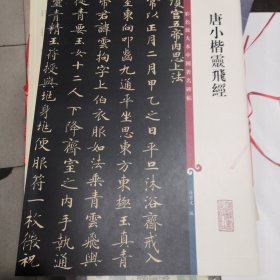 唐小楷靈飛經
彩色放大本中國著名碑帖
瓊宮五帝內思上法
常以正月二月甲乙之日平旦沐浴齋戒入
室東向叩齒九通平坐思東方東極玉真青
帝君諱雲拘字上伯衣服如法乘青雲飛輿
從青要玉女十二人下降齋室之內手執通
靈青精玉符授與兆身兆便服符一枚微祝